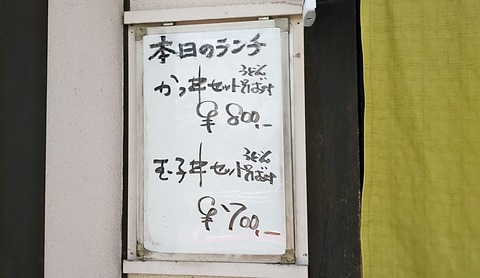 本日のランチ
うどん
かつ丼セットそば付
¥800.-
うどん
玉子丼セットそば付
¥700.-